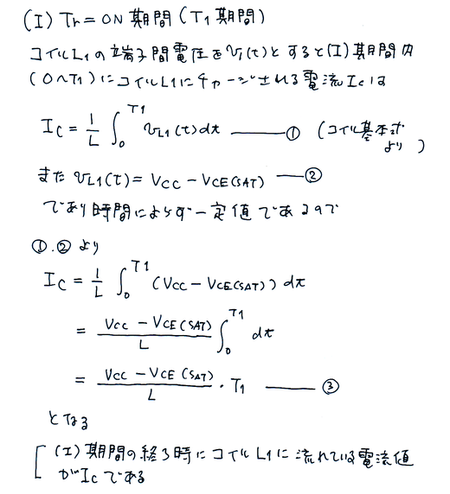 (I) Tr=ON 期間 (T1 期間)
コイルL1の端子間電圧をVl(t)とすると(I)期間内
(0〜T1)にコイルL1にチャージされる電流Icは
Ic = 1/L ∫₀^T1 VL1(t)dt ——① (コイル基本式より)
また VL1(t) = Vcc − VCE(SAT) ——②
であり時間によらず一定値であるので
①.②より
Ic = 1/L ∫₀^T1 (Vcc − VCE(SAT)) dt
= (Vcc − VCE(SAT))/L ∫₀^T1 dt
= (Vcc − VCE(SAT))/L · T1 ——③
となる
[ (I)期間の終る時にコイルL1に流れている電流値
がIcである